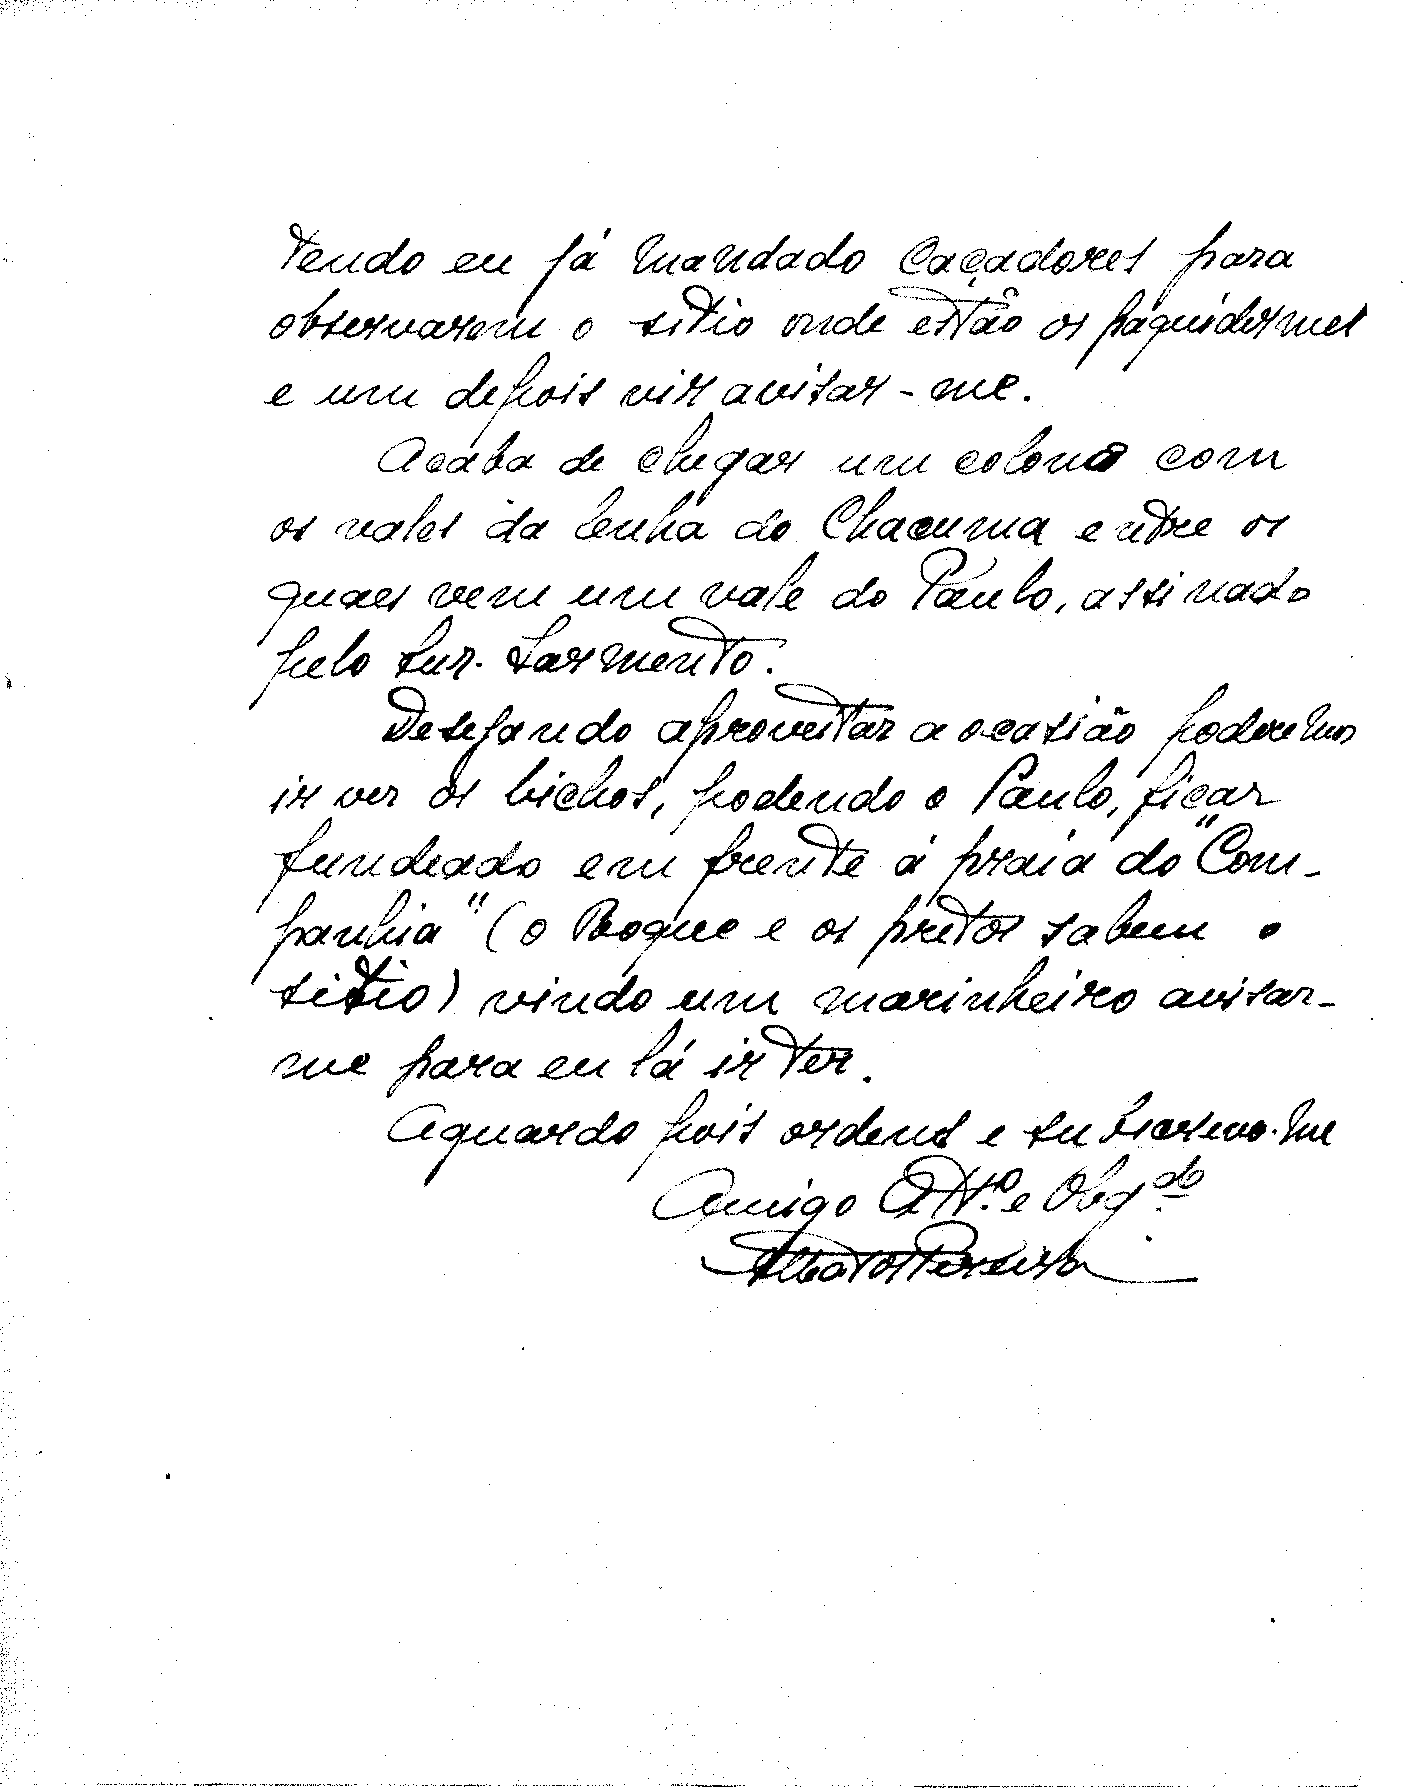 tendo eu já mandado caçadores para
observarem o sitio onde estão os paquidermes
e um depois vir avisar-me.
Acaba de chegar um colono com
os vales da lenha do Chacuma entre os
quaes vem um vale do Paulo, assinado
pelo Snr. Sarmento.
Desejando aproveitar a ocasião poderemos
ir ver os bichos, podendo o Paulo, ficar
fundeado em frente á praia do "Com-
panhia" (o Roque e os pretos sabem o
sitio) vindo um marinheiro avisar-
me para eu lá ir ter.
Aguardo pois ordens e subscrevo-me
Amigo Att.º e Obg.do
Pereira